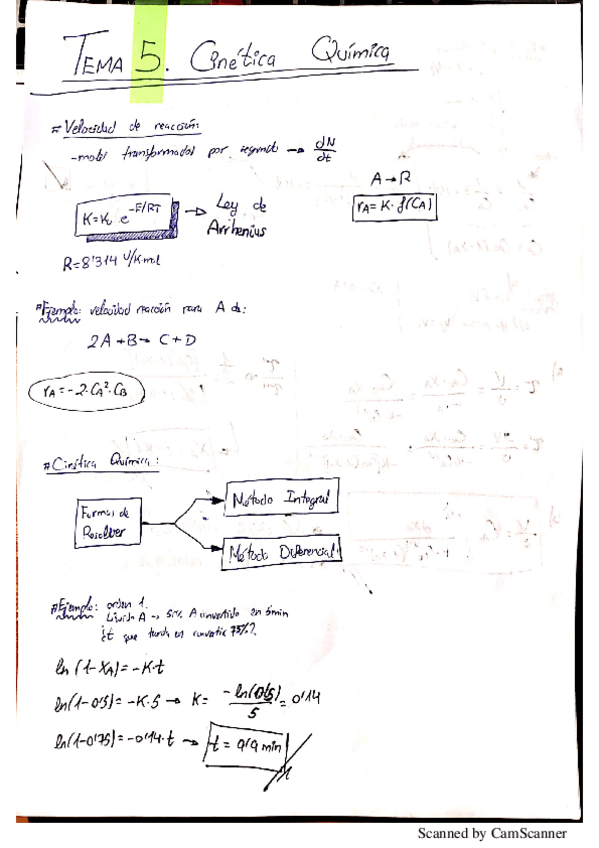 TEMA 5. Cinética Química
#Velocidad de reacción
-moles transformados por segundo → dN/dt
A→R
K=K₀ e^-E/RT → Ley de Arrhenius
rA=K·f(CA)
R=8'314 J/K·mol
#Ejemplo: velocidad reacción para A de:
2A+B→C+D
rA=-2·CA²·CB
#Cinética Química:
Formas de Resolver
Método Integral
Método Diferencial
#Ejemplo: orden 1.
Líquido A → 50% A convertido en 5min
¿t que tarda en convertir 75%?
ln(1-XA)=-K·t
ln(1-0'5)=-K·5 → K= -ln(0'5)/5 = 0'14
ln(1-0'75)=-0'14·t → t = 9'9 min
Scanned by CamScanner